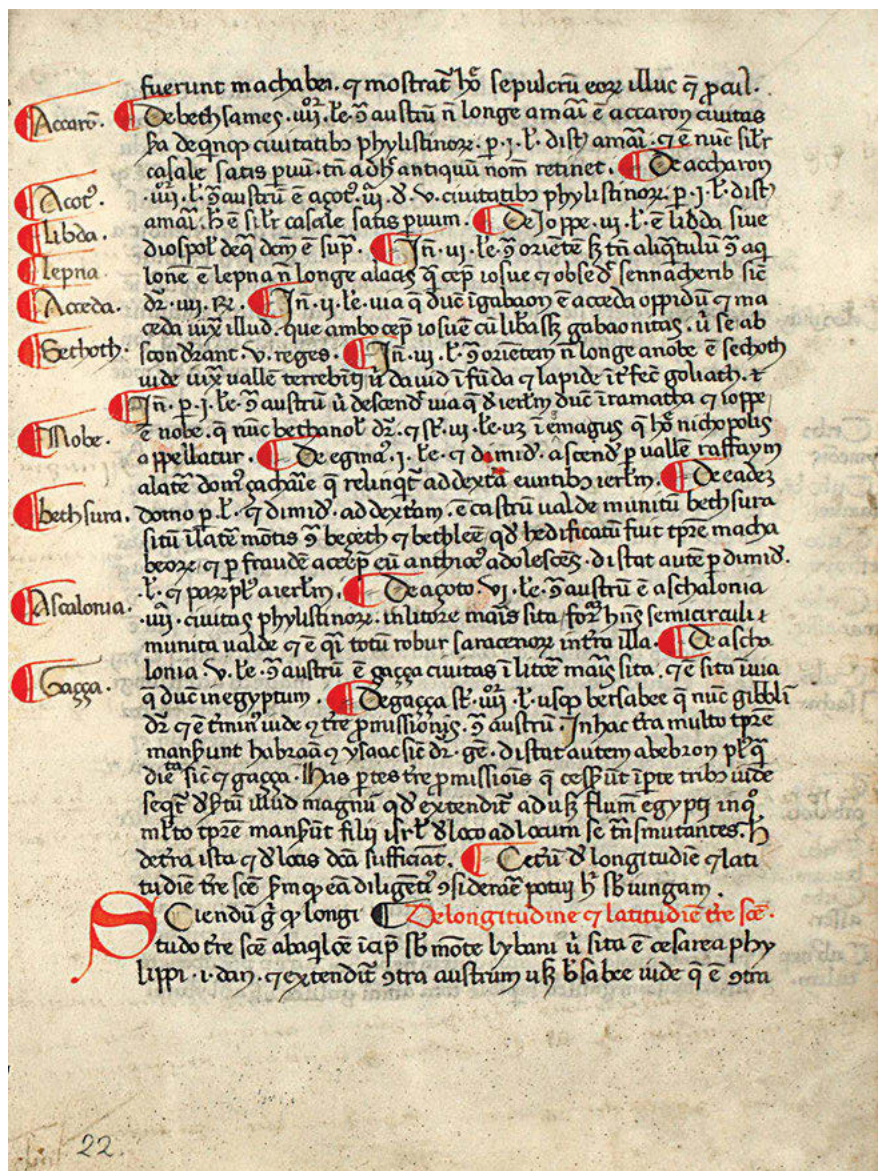 fuerunt machabei. ⁊ mostrat̄ hō sepulcrū eoꝝ illuc q̄ ꝓcul.
Accarō. De bethsames. iiii. l̄e. ꝯ̄ austrū n̄ longe a mai ē accaron civitas
de qinqꝫ ciuitatibꝫ phylistinoꝝ. p. i. l. dist a mai. ⁊ ē nūc silr
casale satis puū. tn̄ adh antiquū nom̄ retinet. De accharon
Acot⁹. iiii. l. ꝯ̄ austrū ē açot⁹. iii. d. v. ciuitatibꝫ phylistinoꝝ. p. i. l. dist
a mai. h ē silr casale satis puum. De Joppe. ui. l. ē libda siue
Libda. diospol de q̄ dcm̄ ē sup̄. Jn̄. ui. l̄e. ꝯ̄ oriētē sꝫ tn̄ aliq̄tulū ꝯ̄ aq̄
Lepna lonē ē lepna n̄ longe a lacis q̄ cep̄ iosue ⁊ obsed sennacherib sic̄
Acceda. dr̄. iiii. Re. Jn̄. ii. l̄e. uia q̄ duc̄ ī gabaon ē acceda oppidū ⁊ ma
ceda iuxͣ illud. que ambo cep̄ iosue cū libasset gabaonitas. ū se ab
Sechoth. sconderant. v. reges. Jn̄. iii. l. ꝯ̄ orietem n̄ longe a nobe ē sechoth
iude iuxͣ uallē terrebīti ū dauid ī fūda ⁊ lapide īt̄fec̄ goliath. t
Jn̄. p. i. l̄e. ꝯ̄ austrū ū descend uia q̄ d ierlm̄ duc̄ ī ramatha ⁊ ioppe
Nobe. ē nobe. q̄ nūc bethanol dr̄. ⁊ st̄. ui. l̄e. uꝫ ī emagus q̄ hō nichopolis
appellatur. De egma. i. l̄e. ⁊ dimid. ascend p uallē raffaym
a latē dom⁹ çachaie q̄ relinqt̄ ad dextͣ euntibꝫ ierlm̄. De eadeꝫ
bethsura. domo p l. ⁊ dimid. ad dextͣm. ē castrū ualde munitū bethsura
sitū ī latē mōtis ꝯ̄ beçeth ⁊ bethleē qd hedificatū fuit tp̄re macha
beoꝝ ⁊ p fraudē accep̄ eū anthioc⁹ adolescēs. distat autē p dimid.
l. ⁊ paꝝ pl⁹ a ierlm̄. De açoto. vi. l̄e. ꝯ̄ austrū ē aschalonia
Ascalonia. iiii. civitas phylistinoꝝ. in litore mais sita. formā hn̄s semicirculi ⁊
munita ualde ⁊ ē qi totū robur saracenoꝝ intra illa. De ascha
lonia. v. l̄e. ꝯ̄ austrū ē gaçça civitas ī litōe mais sita. ⁊ ē sita ī uia
Gaçça. q̄ duc̄ in egyptum. De gaçça st̄. iiii. l. usqꝫ bersabee q̄ nūc giblī
dr̄ ⁊ ē t̄min⁹ iude ⁊ t̄re ꝓmissiōnis. ꝯ̄ austrū. In hac t̄ra multo tp̄re
manserunt habraā ⁊ ysaac sic̄ dr̄. gē. distat autem ab ebron pl⁹ qͣ
dietͣ sic̄ ⁊ gaçça. Has ptes t̄re ꝓmissiois q̄ cesserūt ī pte tribꝫ iude
seqt̄ desertū illud magnū qd extendit̄ ad usqꝫ flum̄ egypti in quo
mlto tp̄re manserūt filii isrl de loco ad locum se tn̄smutantes. h
de t̄ra ista ⁊ d locis dcā sufficiāt. Cet̄ū d longitudīe ⁊ lati
tudīe t̄re scē ꝓut eā diligenti⁹ ꝯsiderare potui h sbiungam.
Sciendū g̊ qꝫ longi De longitudine ⁊ latitudīe t̄re scē.
tudo t̄re scē ab aqilōe īcip̄ sb mōte lybani ū sita ē cesarea phy
lippi. i. dan. ⁊ extendit̄ ꝯtra austrum usꝫ bsabee iude q̄ ē ꝯtra
22